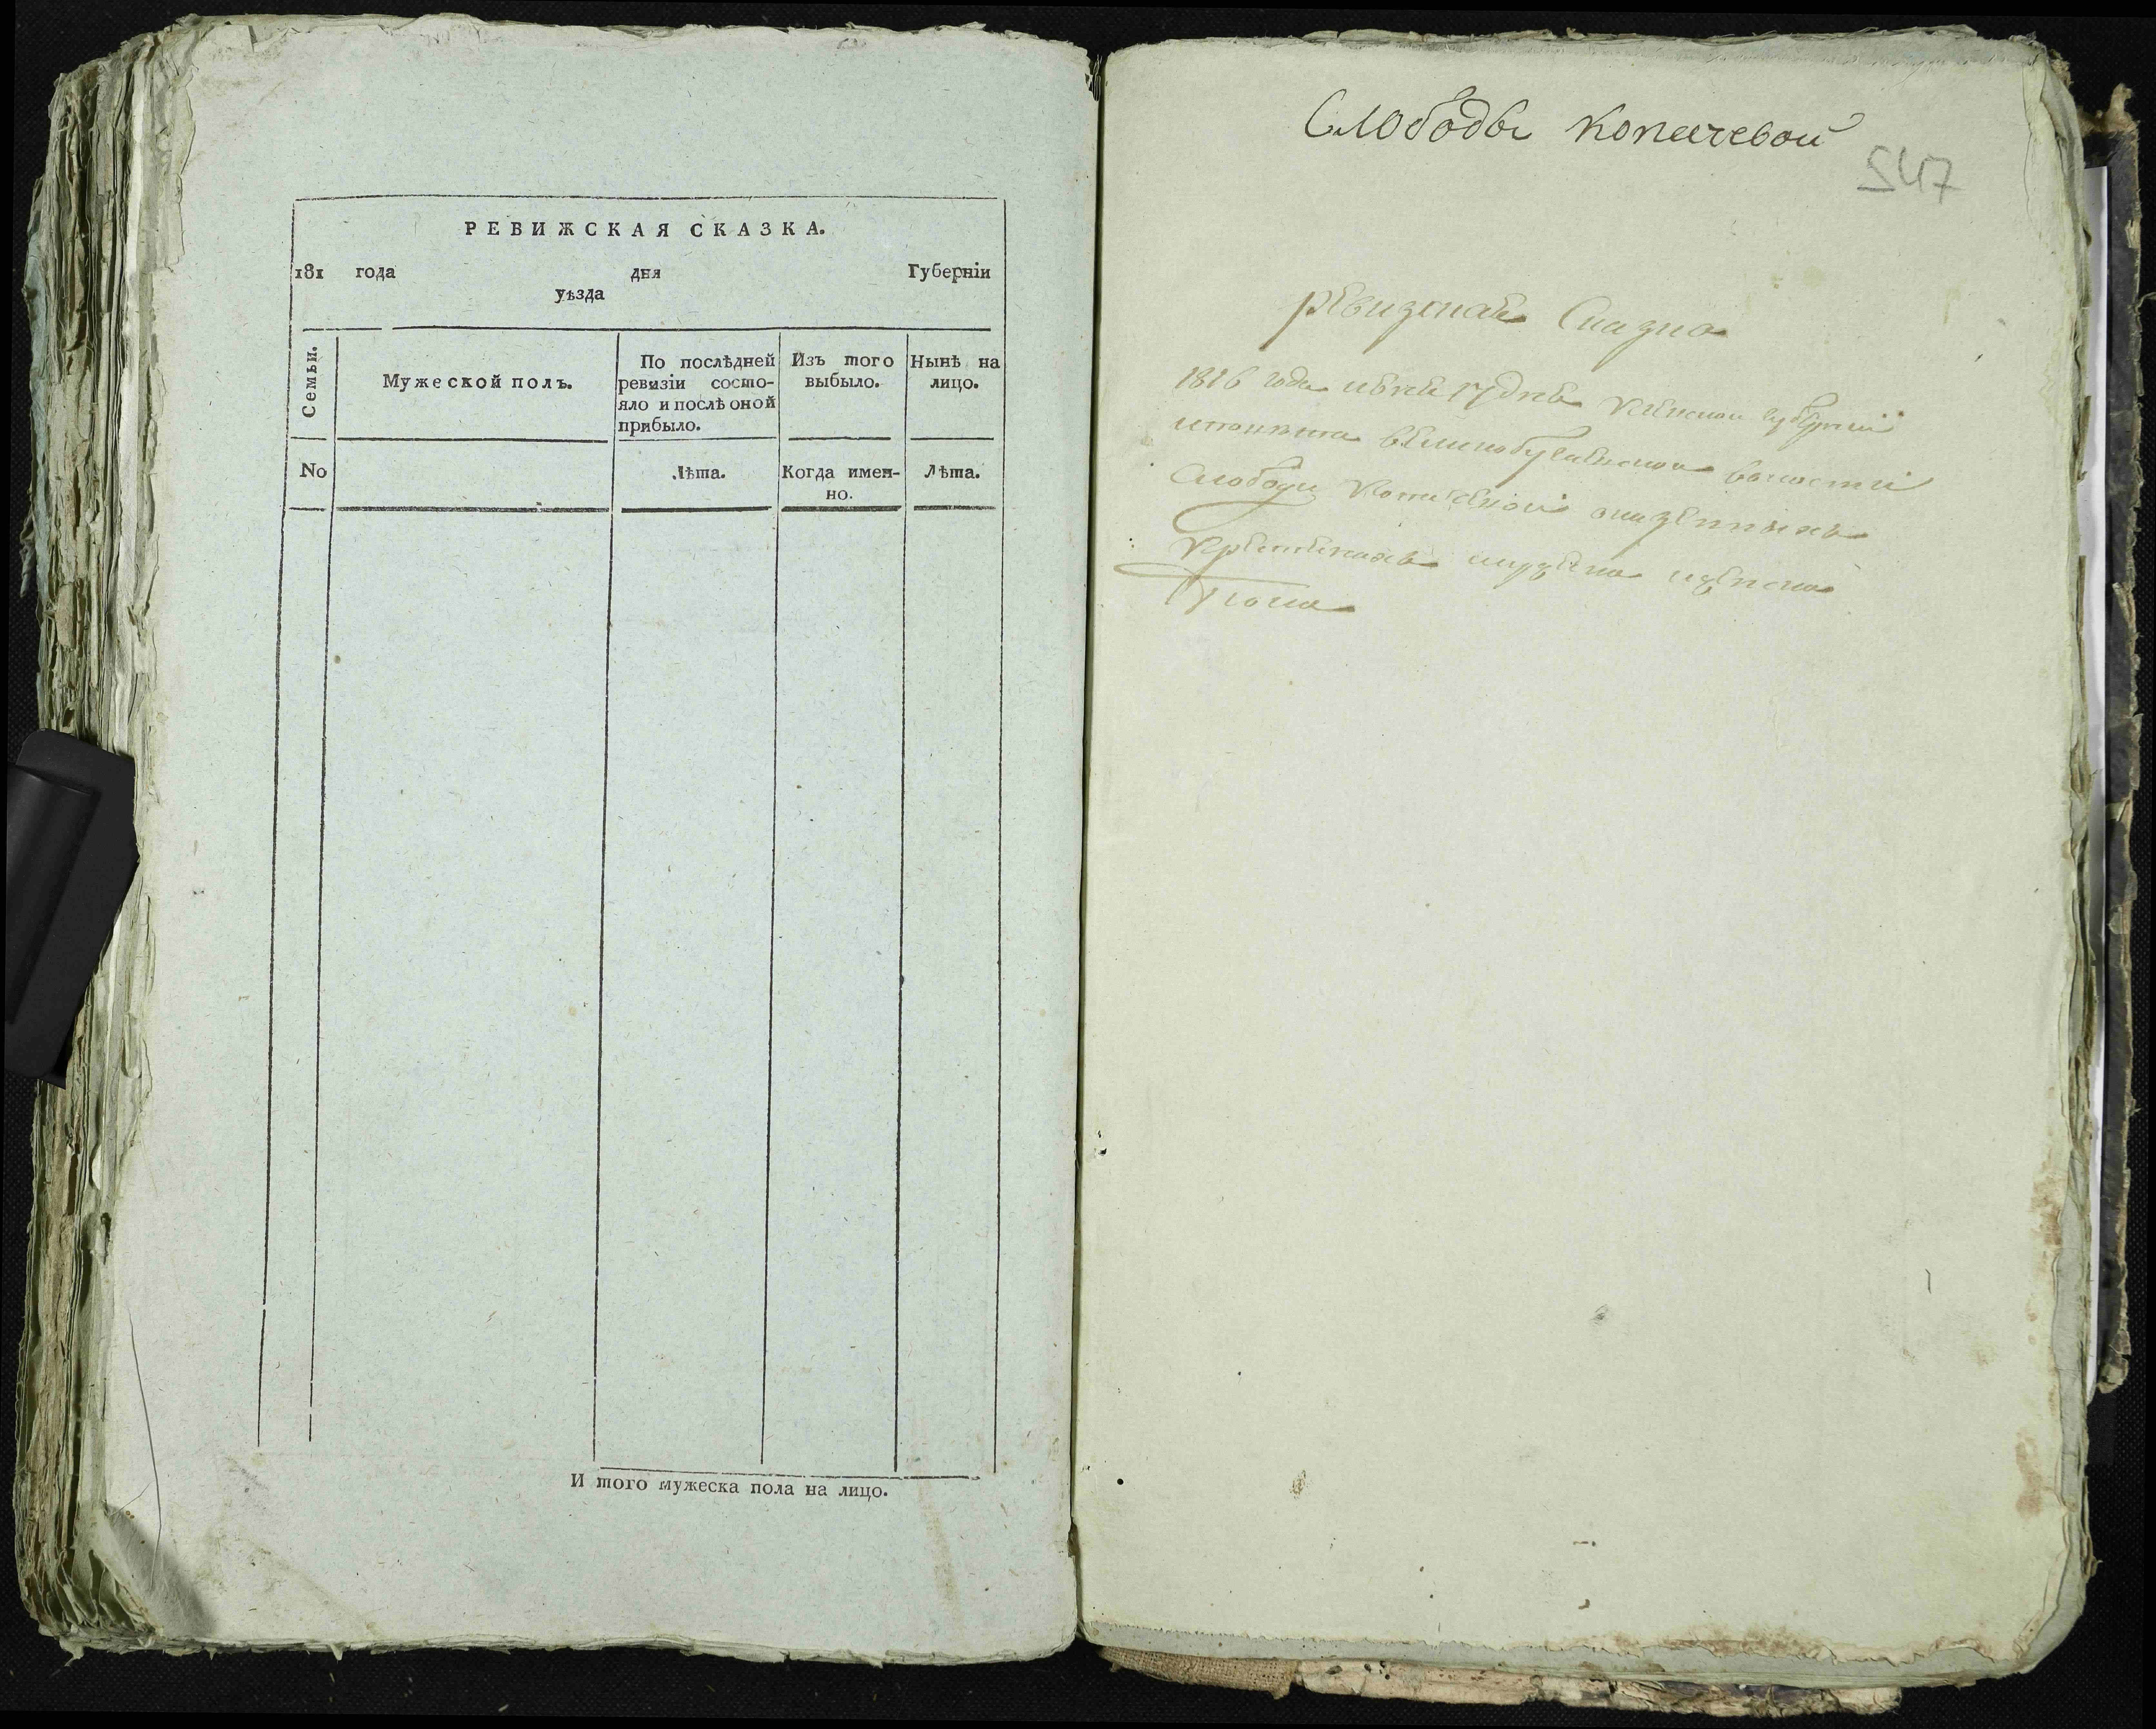 РЕВИЖСКАЯ СКАЗКА.
181 года дня Губерніи
уѣзда
Семьи.
Мужеской полъ.
По послѣдней
ревизіи состо-
яло и послѣ оной
прибыло.
Изъ того
выбыло.
Нынѣ на
лицо.
No
Лѣта.
Когда имен-
но.
Лѣта.
И того мужеска пола на лицо.
Слободы Копачевой
547
ревизская Сказка
1816 года 17 дня Киевской губернии
волости
Слободы казенныхъ
Крестьянахъ мужеска иженска
Пола